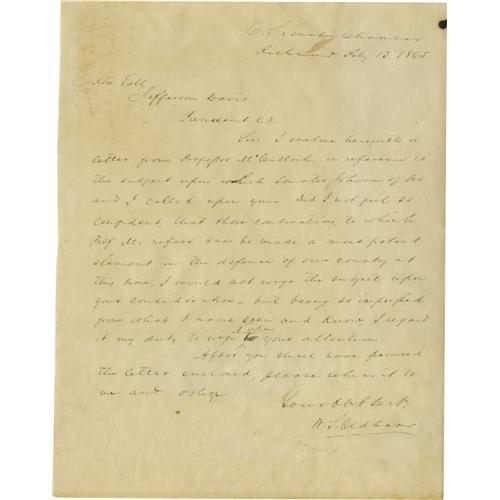 C.S. Senate Chamber
Richmond Feby 13, 1865
His Excy
Jefferson Davis
President C.S.
Sir, I enclose herewith a
letter from Professor McCulloch, in reference to
the subject upon which Senator Johnson of Mo
and I called upon you. Did I not feel so
confident, that those combinations to which
Prof. M. refers can be made a most potent
element in the defence of our country at
this time, I would not urge the subject upon
your consideration - but being so impressed,
from what I have seen and know, I regard
it my duty to urge it upon your attention.
After you shall have perused
the letter enclosed, please return it to
me and oblige
Your Obt Servt.
W. S. Oldham